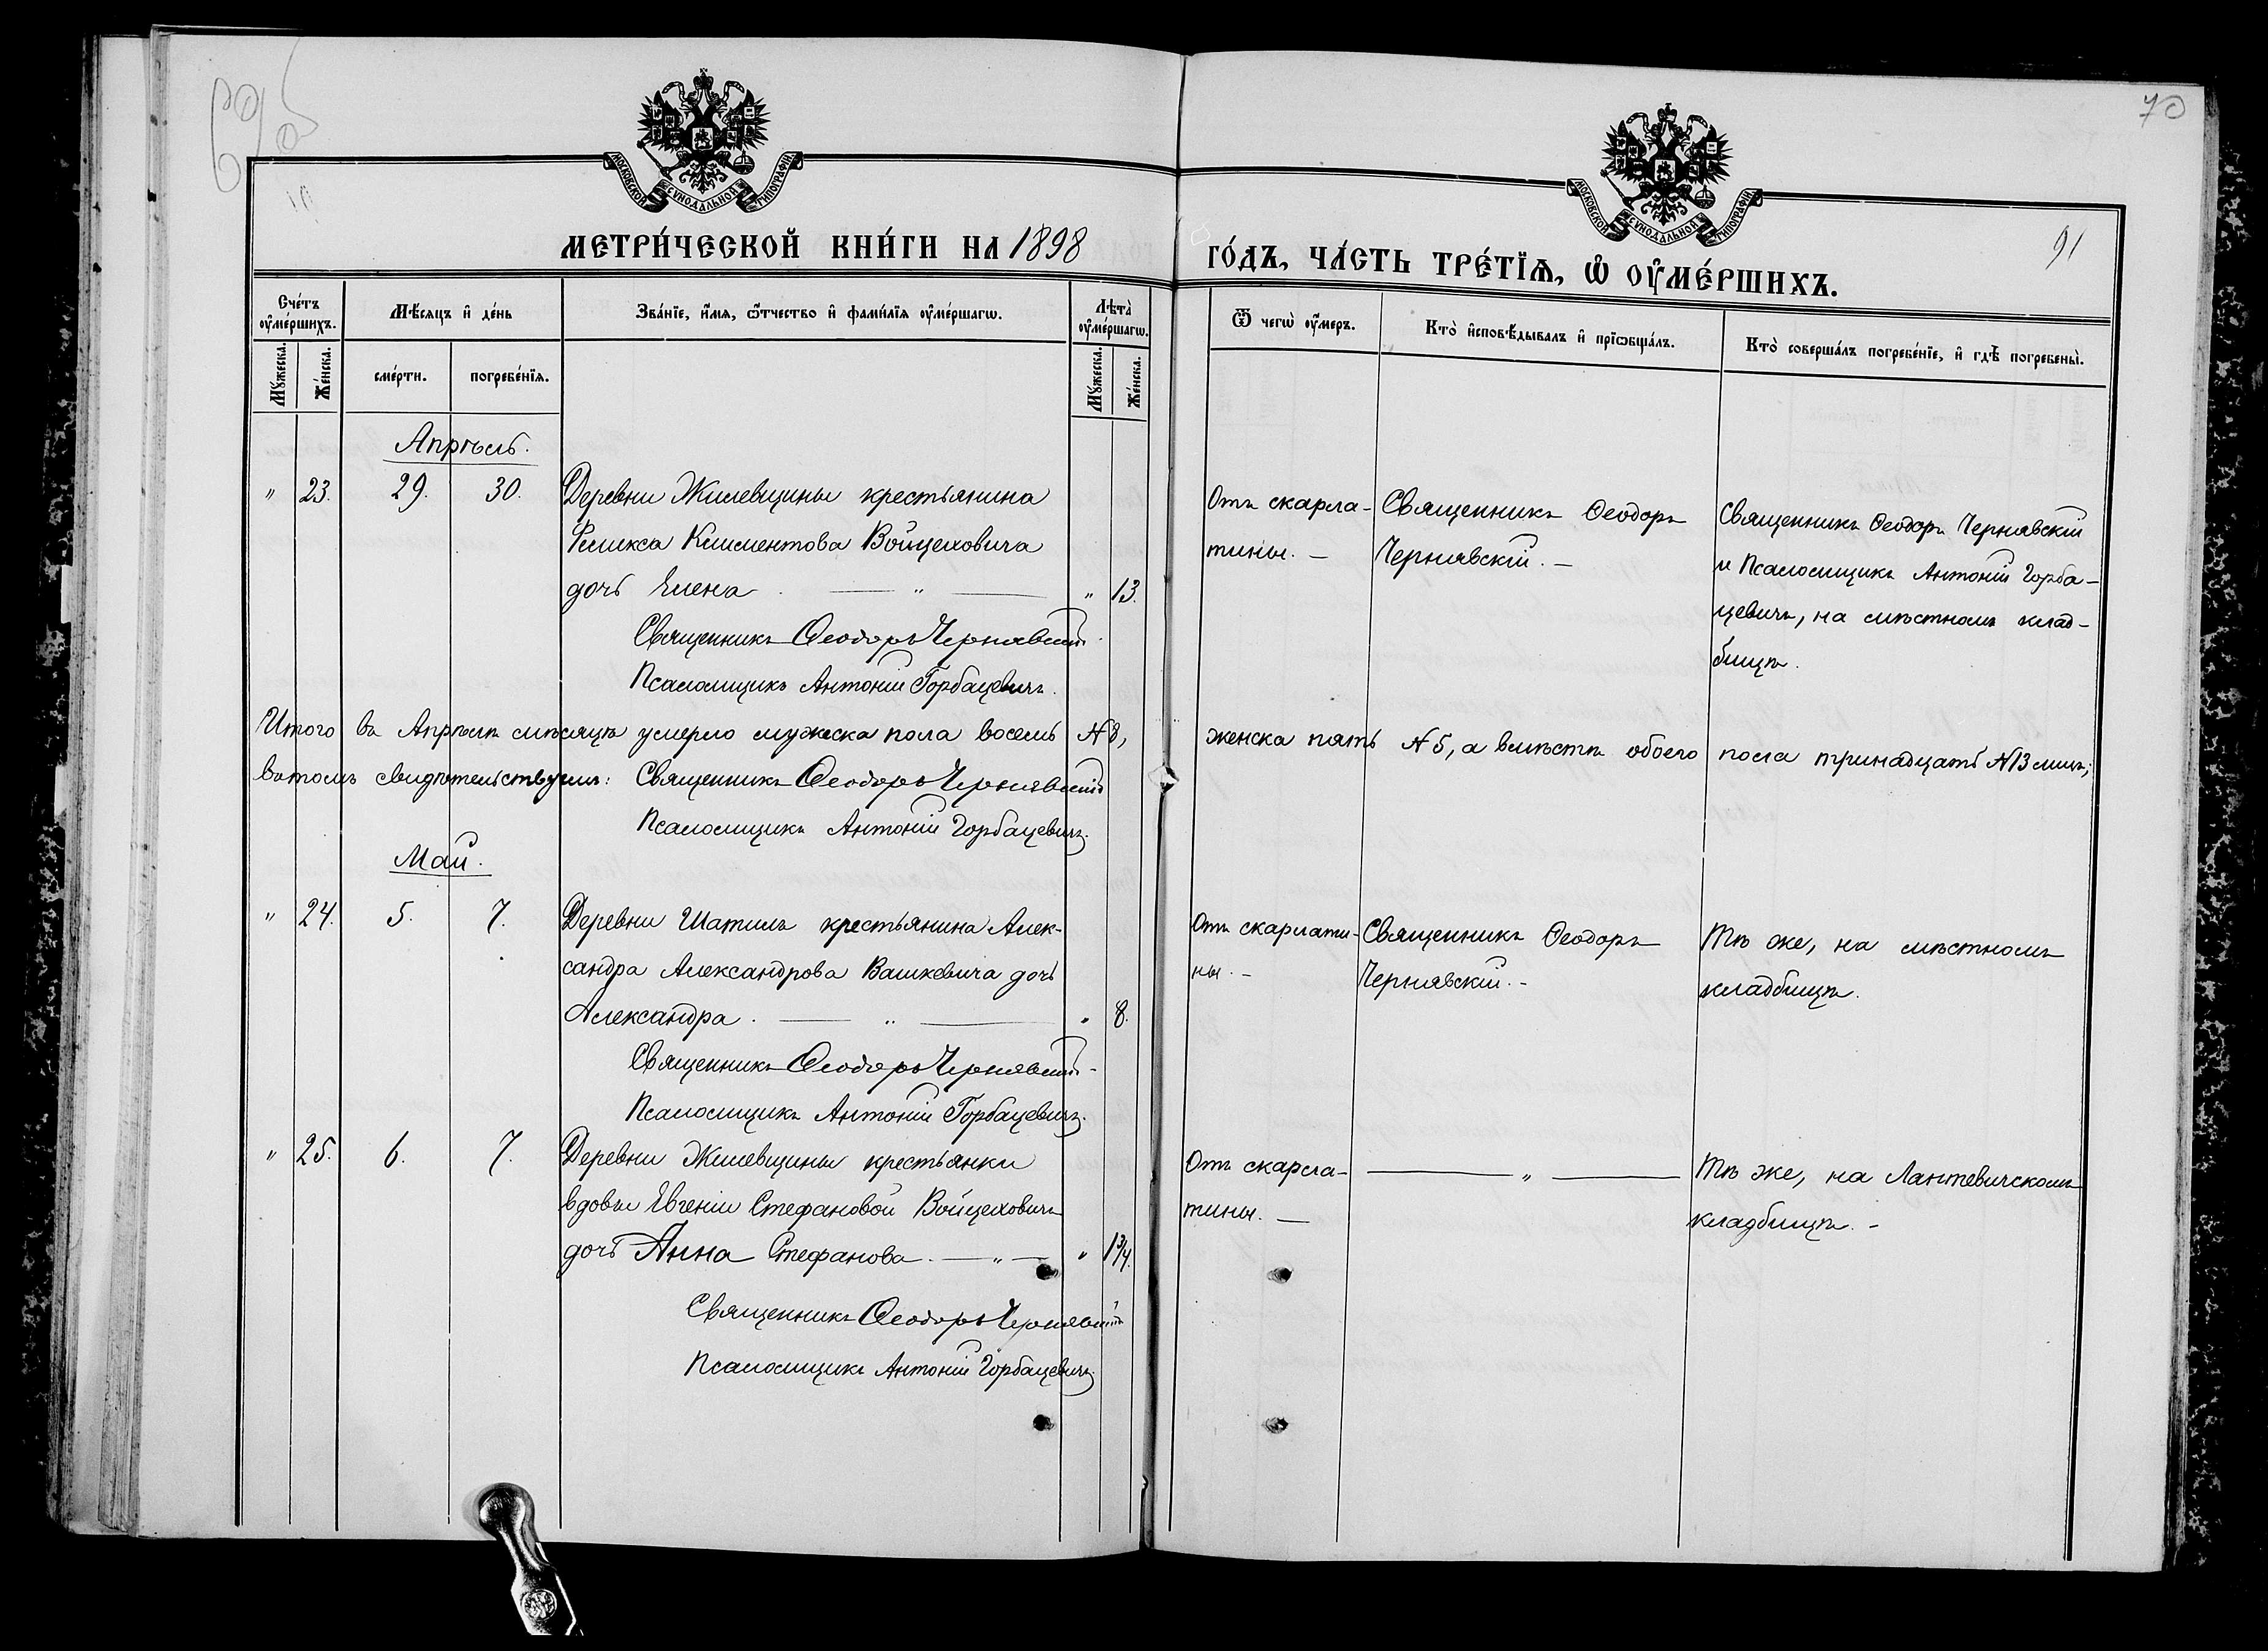 69 об
70
91
МОСКОВСКОЙ СѴНОДАЛЬНОЙ ТИПОГРАФІИ.
МОСКОВСКОЙ СѴНОДАЛЬНОЙ ТИПОГРАФІИ.
МЕТРИ́ЧЕСКОЙ КНИ́ГИ НА 1898
ГО́ДЪ, ЧА́СТЬ ТРЕ́ТІѦ, Ѡ҆ ОУ҆МЕ́РШИХЪ.
Сче́тъ оу҆ме́ршихъ.
Мѣ́сяцъ и҆ де́нь
Зва́нїе, и҆́мѧ, ѻ҆́тчество и҆ фами́лїѧ оу҆ме́ршагѡ.
Лѣ́та оу҆ме́ршагѡ.
Ѿ чегѡ̀ оу҆́меръ.
Кто̀ и҆сповѣ́дывалъ и҆ прїѡбща́лъ.
Кто̀ соверша́лъ погребе́нїе, и҆ гдѣ̀ погребены̀.
Мꙋ́жеска. Же́нска. сме́рти. погребе́нїѧ. Мꙋ́жеска. Же́нска.
Апрѣль.
" 23. 29. 30. Деревни Жилевщины крестьянина
Феликса Климентова Войцеховича
дочь Елена. — " — " 13.
Священникъ Ѳеодоръ Чернявскій.
Псаломщикъ Антоній Горбацевичъ.
Отъ скарла-
тины. —
Священникъ Ѳеодоръ
Чернявскій. —
Священникъ Ѳеодоръ Чернявскій
и Псаломщикъ Антоній Горба-
цевичъ, на мѣстномъ клад-
бищѣ.
Итого въ Апрѣлѣ мѣсяцѣ умерло мужеска пола восемь № 8, женска пять № 5, а вмѣстѣ обоего пола тринадцать № 13 лицъ;
въ томъ свидѣтельствуемъ: Священникъ Ѳеодоръ Чернявскій
Псаломщикъ Антоній Горбацевичъ.
Май.
" 24. 5. 7. Деревни Шатилъ крестьянина Алек-
сандра Александрова Вашкевича дочь
Александра. — " — " 8.
Священникъ Ѳеодоръ Чернявскій.
Псаломщикъ Антоній Горбацевичъ.
Отъ скарлати-
ны. —
Священникъ Ѳеодоръ
Чернявскій. —
Тѣ же, на мѣстномъ
кладбищѣ.
" 25. 6. 7. Деревни Жилевщины крестьянки
вдовы Евгеніи Стефановой Войцеховичъ
дочь Анна Стефанова. — " — " 1 3/4.
Священникъ Ѳеодоръ Чернявскій
Псаломщикъ Антоній Горбацевичъ.
Отъ скарла-
тины. —
— " —
Тѣ же, на Лаптевичскомъ
кладбищѣ. —